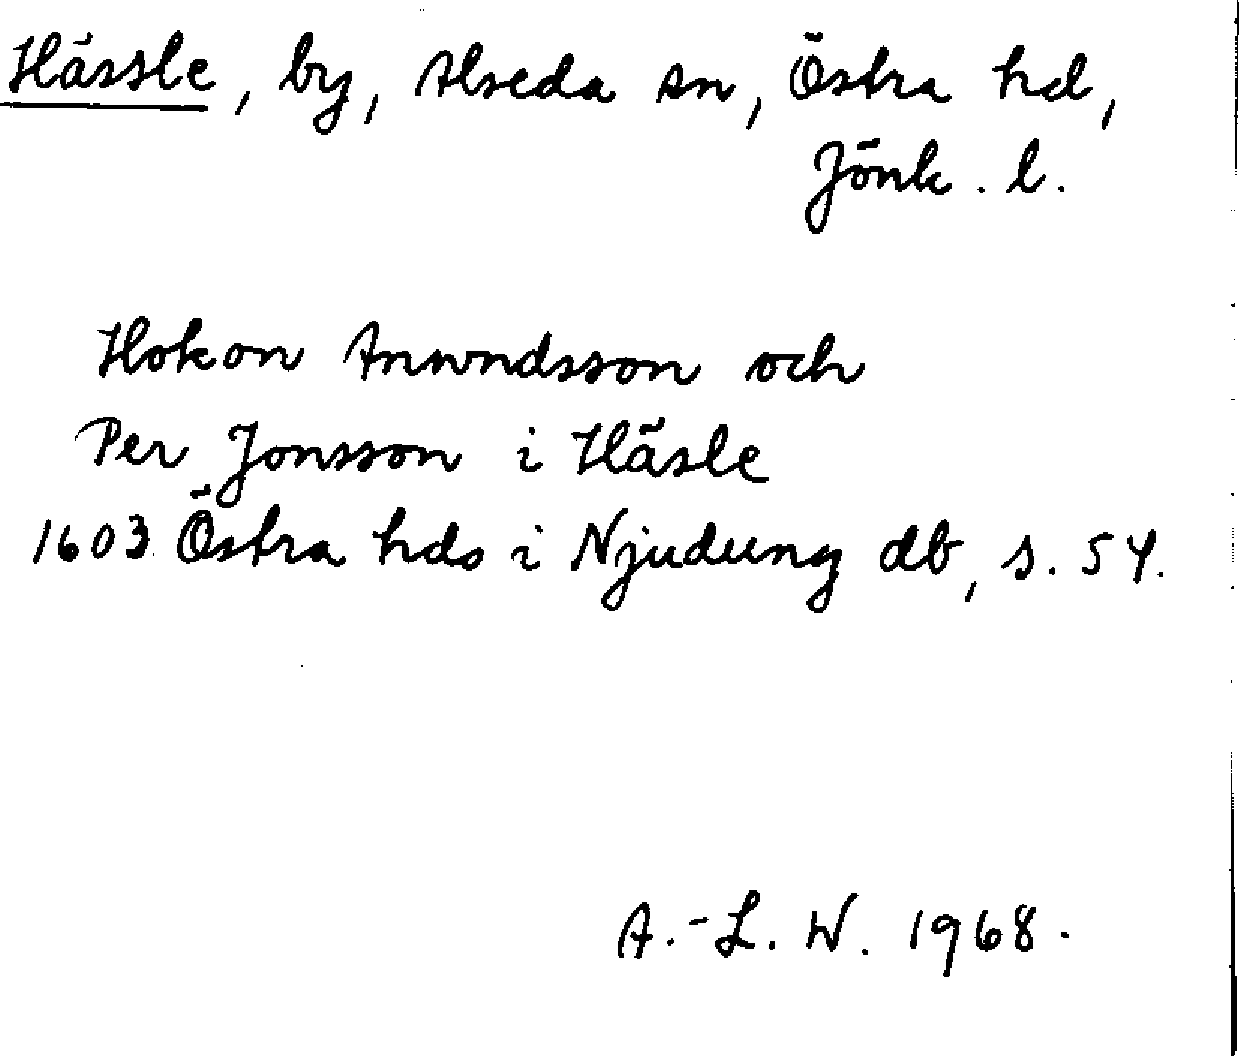 Hässle, by, Alseda sn, Östra hd,
Jönk. l.
Hokon Anwndsson och
Per Jonsson i Häsle
1603 Östra hds i Njudung db, s. 54.
A.-L. W. 1968.